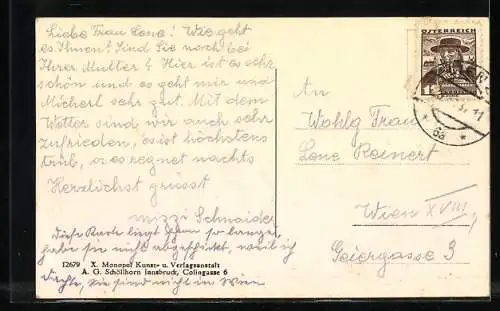 Liebe Frau Lene! Wie geht
es Ihnen? Sind Sie noch bei
Ihrer Mutter? Hier ist es sehr
schön und es geht mir und
Micherl sehr gut. Mit dem
Wetter sind wir auch sehr
zufrieden, es ist höchstens
trüb, oder es regnet nachts
Herzlichst grüsst
Mizzi Schneider
Diese Karte liegt schon so lange,
habe sie nicht abgeschickt, weil ich
dachte, sie sind nicht in Wien
12679 X. Monopol Kunst- u. Verlagsanstalt
A. G. Schöllhorn Innsbruck, Colingasse 6
ÖSTERREICH
12
6a
An
Wohlg Frau
Lene Reinert
Wien XVIII,
Geiergasse 3